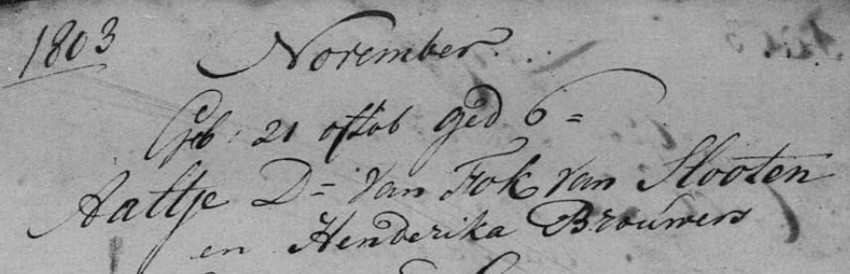 1803 November.
Geb: 21 octob ged 6=
Aaltje D= van Fok van Slooten
en Henderika Brouwers